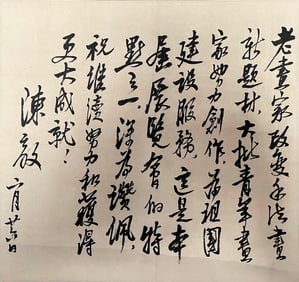 老画家改变手法画
新题材，大批青年画
家努力创作为祖国
建设服务，这是本
届展览会的特
点之一，深为讚佩，
祝继续努力和获得
更大成就！
陈毅
六月廿六日